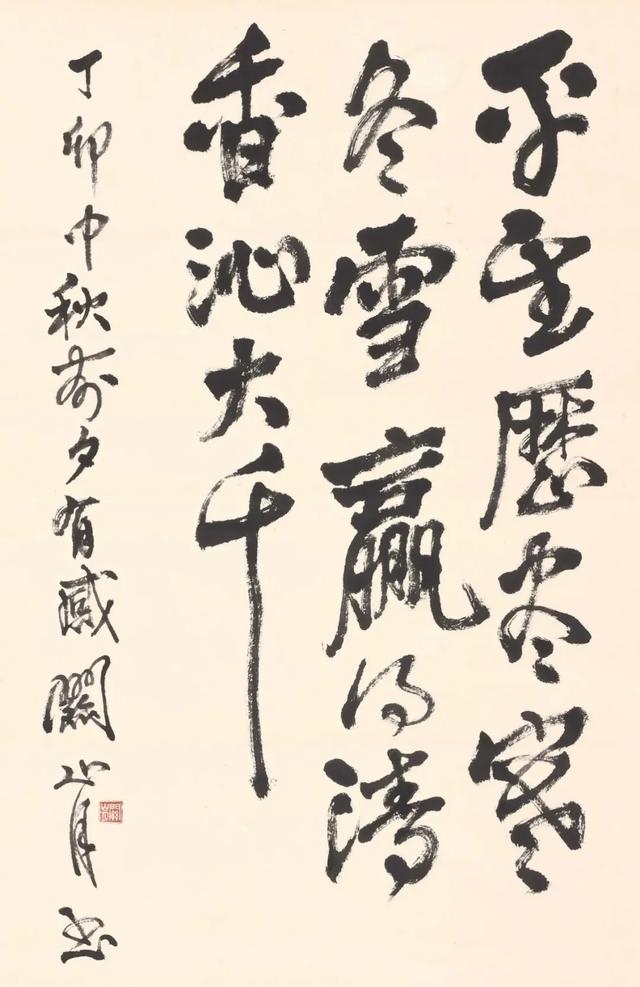 平生歷盡寒
冬雪贏得清
香沁大千
丁卯中秋前夕有感關山月書